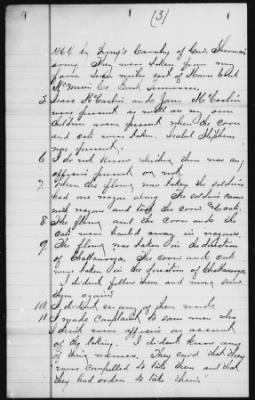 (3)
1864 by King's Cavalry of Gen. Sherman
army. They were taken from my
farm miles east of
McMinn Co. East Tennessee.
5. Isaac McCaslin and Jane McCaslin
were present as well as my own
children were present when the corn
and oats were taken. Isabel Stephens
was present.
6 I do not know whether there was any
officers present or not.
7. When the flour was taken the soldiers
had one wagon along. The soldiers came
with wagon and took the corn & oats.
8 The flour and the corn and the
oats were hauled away in wagons.
9. The flour was taken in the direction
of Chattanooga. The corn and oats
was taken in the direction of Chattanooga.
I didnt follow them and never saw
them again.
10 I didnt see any of them used.
11 I made complaint to some men who
I think were officers on account
of the taking. I didnt know any
of their names. They said that they
were compelled to take them and that
they had orders to take them.